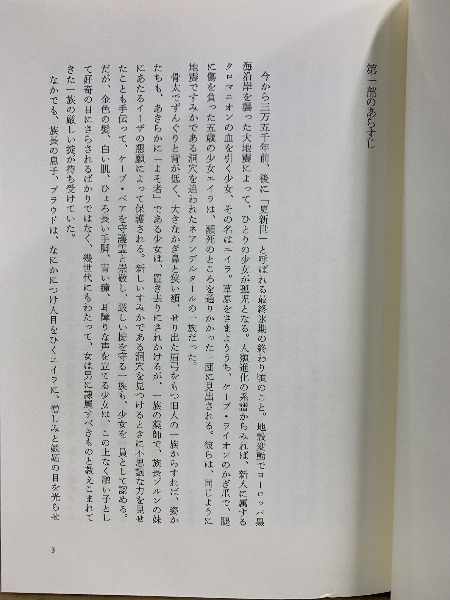 第一部のあらすじ
今から三万五千年前、後に「更新世」と呼ばれる最終氷期の終わり頃のこと。地殻変動でヨーロッパ黒
海沿岸を襲った大地震によって、ひとりの少女が孤児となる。人類進化の系譜からみれば、新人に属する
クロマニオンの血を引く少女、その名はエイラ。草原をさまよううち、ケーブ・ライオンのかぎ爪で、腿
に傷を負った五歳の少女エイラは、瀕死のところを通りかかった一団に見出される。彼らは、同じように
地震ですみかである洞穴を追われたネアンデルタールの一族だった。
骨太でずんぐりと背が低く、大きなかぎ鼻と狭い額、せり出た眉弓をもつ旧人の一族からすれば、姿か
たちも、あきらかに「よそ者」である少女は、置き去りにされかけるが、一族の薬師で、族長ブルンの妹
にあたるイーザの懇願によって保護される。新しいすみかである洞穴を見つけるときに不思議な力を見せ
たことも手伝って、ケーブ・ベアを守護霊と崇敬し、厳しい掟を守る一族も、少女を一員として認める。
だが、金色の髪、白い肌、ひょろ長い手脚、青い瞳、耳障りな声を立てる少女は、この上なく醜い子とし
て好奇の目にさらされるばかりではなく、幾世代にもわたって、女は男に隷属すべきものと教えこまれて
きた一族の厳しい掟が待ち受けていた。
なかでも、族長の息子、ブラウドは、なにかにつけ人目をひくエイラに、憎しみと嫉妬の目を光らせ
3